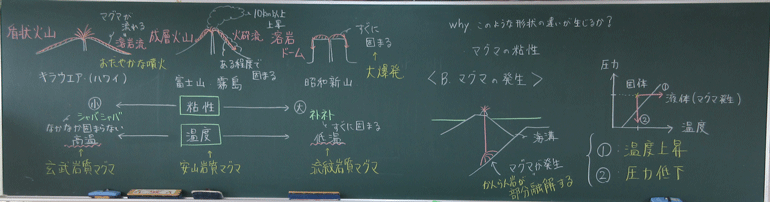 盾状火山
マグマが
流れる
溶岩流
おだやかな噴火
キラウエア(ハワイ)
成層火山
10km以上
上昇
火砕流
ある程度で
固まる
富士山 霧島
溶岩
ドーム
すぐに
固まる
大爆発
昭和新山
小
粘性
大
シャバシャバ
なかなか固まらない
ネトネト
すぐに固まる
高温
温度
低温
玄武岩質マグマ
安山岩質マグマ
流紋岩質マグマ
why このような形状の違いが生じるか?
マグマの粘性
<B. マグマの発生>
海溝
マグマが発生
かんらん岩が
部分融解する
圧力
固体
①
液体(マグマ発生)
②
温度
①:温度上昇
②:圧力低下